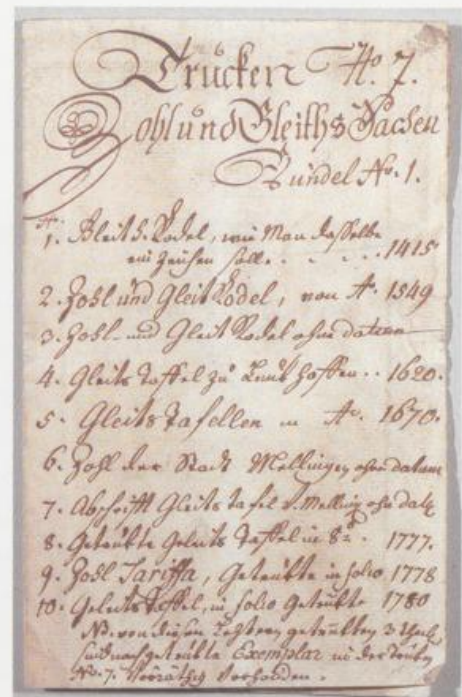 Trucken No. 7.
Zohl und Gleiths Sachen
Bündel No. 1.
No.
1. Gleits Rodel, wie Man dasselbe
ein ziehen solle. . . . . 1415
2. Zohl und Gleit Rodel, von Ao. 1549
3. Zohl- und Gleit Rodel ohne datum
4. Gleits Taffel zu Lauf hoffen . . 1620.
5. Gleits Tafellen in Ao. 1670.
6. Zohl der Stadt Mellingen, ohne datum
7. Abschrifft Gleits tafel v. Melling ohn dat.
8. Getrükte Geleits Taffel in 8vo. 1777.
9. Zohl Tariffa, Getrükte in folio 1778
10. Geleits Taffel, in folio Getrükte 1780
NB. von diesen Letstern getrükten 3
sind Exemplar in der Trüken
No. 7. Vorräthig Vorhanden.